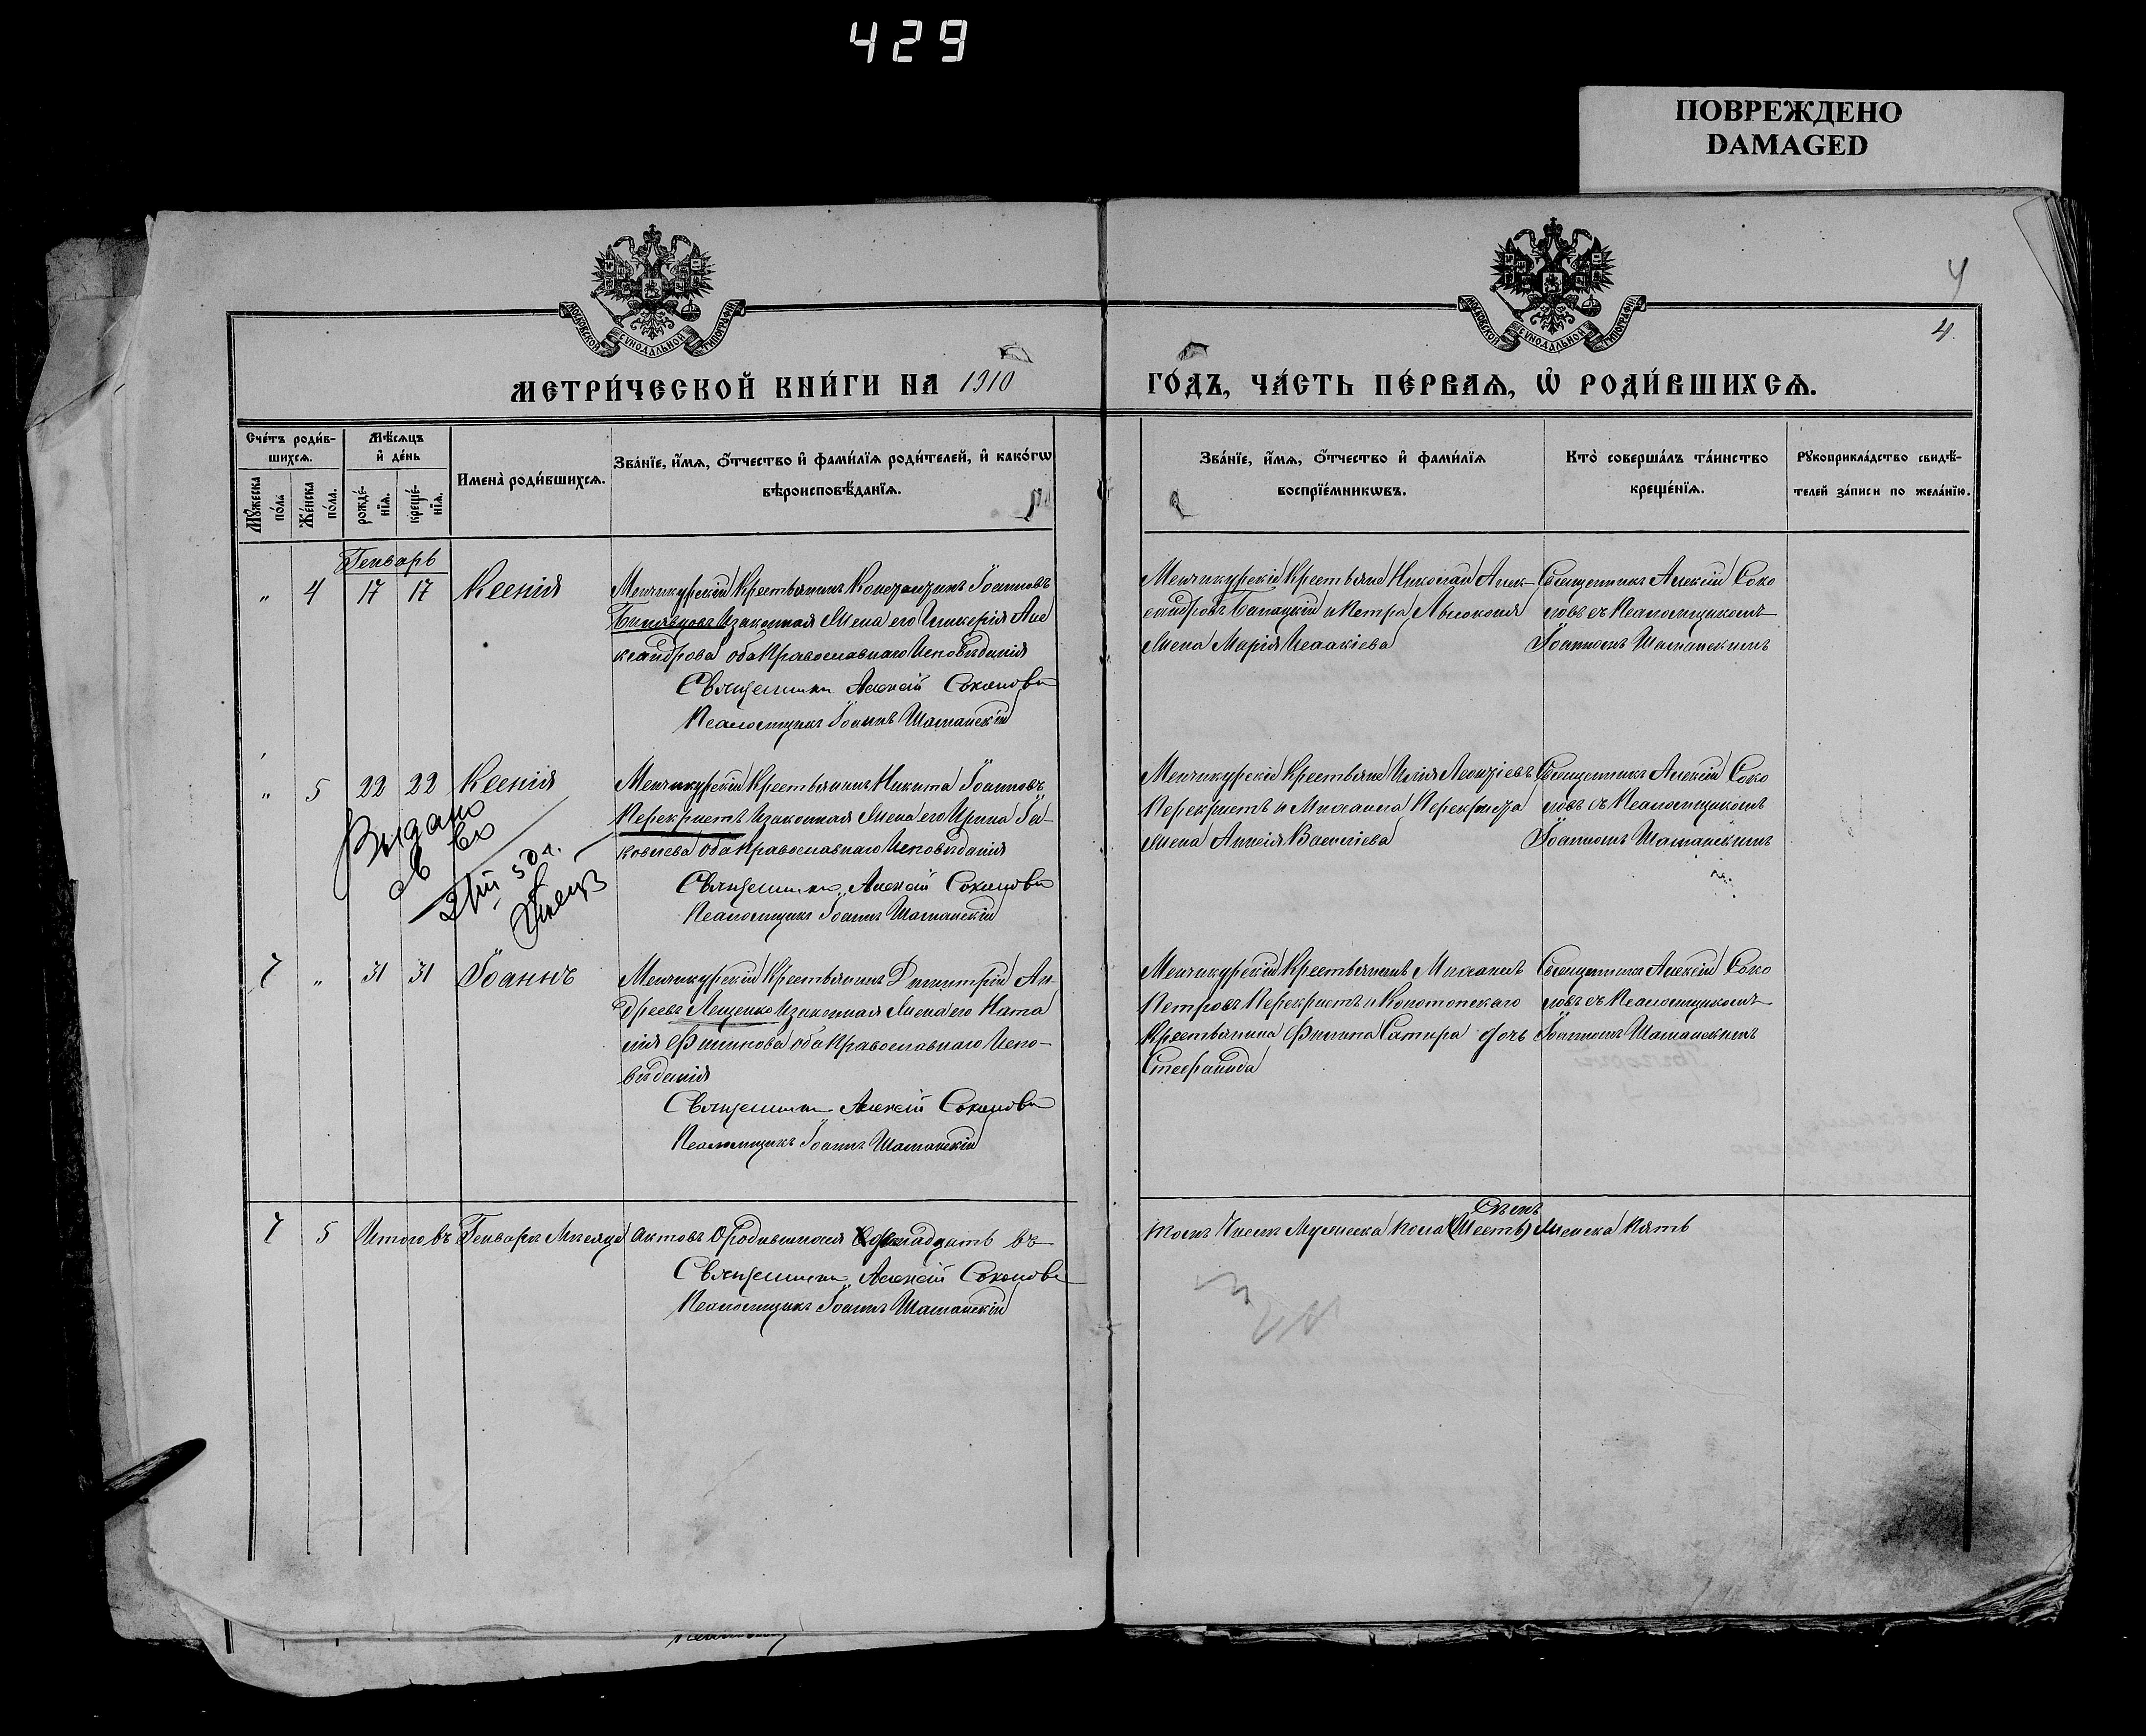 429
ПОВРЕЖДЕНО
DAMAGED
МОСКОВСКОЙ СУНОДАЛЬНОЙ ТИПОГРАФІИ
МОСКОВСКОЙ СУНОДАЛЬНОЙ ТИПОГРАФІИ
4
4
МЕТРИ́ЧЕСКОЙ КНИ́ГИ НА 1910
ГО́ДЪ, ЧА́СТЬ ПЕ́РВАѦ, Ѡ РОДИ́ВШИХСѦ.
Сче́тъ роди́в-
шихсѧ.
Мѣ́сѧцъ
и҆ де́нь
Мꙋ́жеска по́ла
Же́нска по́ла.
рожде́-нїѧ.
креще́-нїѧ.
Имена̀ роди́вшихсѧ.
Зва́нїе, и҆́мѧ, ѻ҆́тчество и҆ фами́лїѧ роди́телей, и҆ како́гѡ
вѣроисповѣ́данїѧ.
Зва́нїе, и҆́мѧ, ѻ҆́тчество и҆ фами́лїѧ
воспрїе́мникѡвъ.
Кто̀ соверша́лъ та́инство
креще́нїѧ.
Рꙋкоприкла́дство свидѣ́-
телей за́писи по жела́нїю.
Генварь
" 4 17 17 Ксенія
Менчикурскій Крестьянинъ Константинъ Іоанновъ
изаконная Жена его Гликерія Але
ксандрова оба Православнаго Исповѣданія
Священникъ Алексій Соколовъ
Псаломщикъ Іоаннъ Шаманскій
Менчикурскіе Крестьяне Николай Алек-
сандровъ и Петра
Жена Марія Исаакіева
Священникъ Алексій Соко
ловъ съ Псаломщикомъ
Іоанномъ Шаманскимъ
" 5 22 22 Ксенія
Менчикурскій Крестьянинъ Никита Іоанновъ
Перекрестъ изаконная Жена его Ирина Іа-
ковлева оба Православнаго Исповѣданія
Священникъ Алексій Соколовъ
Псаломщикъ Іоаннъ Шаманскій
Выдано
св во
Менчикурскіе Крестьяне Илія Леонтіевъ
Перекрестъ и Михаила Перекреста
Жена Анисія Василіева
Священникъ Алексій Соко
ловъ съ Псаломщикомъ
Іоанномъ Шаманскимъ
7 " 31 31 Іоаннъ
Менчикурскій Крестьянинъ Димитрій Ан-
дреевъ Лещенко изаконная Жена его Ната
лія Филипова оба Православнаго Испо-
вѣданія
Священникъ Алексій Соколовъ
Псаломщикъ Іоаннъ Шаманскій
Менчикурскій Крестьянинъ Михаилъ
Петровъ Перекрестъ и Конотопскаго
Крестьянина Филипа Сатира дочь
Стефанида
Священникъ Алексій Соко
ловъ съ Псаломщикомъ
Іоанномъ Шаманскимъ
7 5 Итого въ Генварѣ Мѣсяцѣ актовъ о родившихся въ
Священникъ Алексій Соколовъ
Псаломщикъ Іоаннъ Шаманскій
Семь
томъ Числѣ Мужеска пола (Шесть) Женска Пять